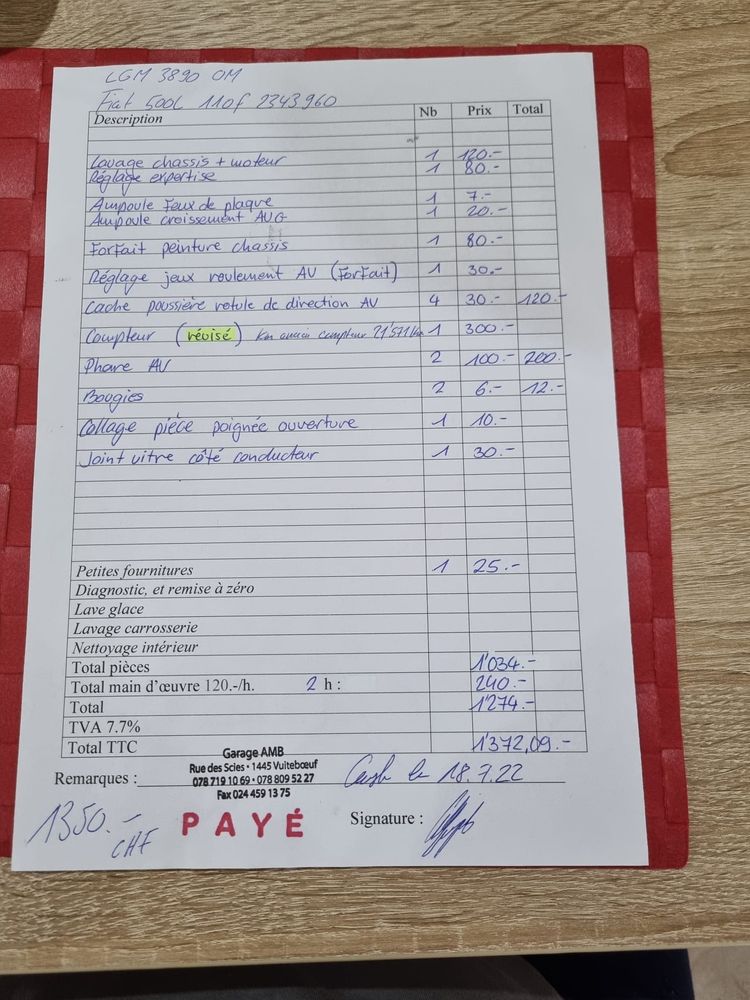 LGM 3890 OM
Fiat 500L 110f 2343960
Description Nb Prix Total
Lavage chassis + moteur 1 120.-
Réglage expertise 1 80.-
Ampoule Feux de plaque 1 7.-
Ampoule croissement AVG 1 20.-
Forfait peinture chassis 1 80.-
Réglage jeux roulement AV (Forfait) 1 30.-
Cache poussière rotule de direction AV 4 30.- 120.-
Compteur (révisé) Km ancien compteur 21'571 km 1 300.-
Phare AV 2 100.- 200.-
Bougies 2 6.- 12.-
Collage pièce poignée ouverture 1 10.-
Joint vitre côté conducteur 1 30.-
Petites fournitures 1 25.-
Diagnostic, et remise à zéro
Lave glace
Lavage carrosserie
Nettoyage intérieur
Total pièces 1'034.-
Total main d'œuvre 120.-/h. 2 h : 240.-
Total 1'274.-
TVA 7.7%
Total TTC 1'372,09.-
Garage AMB
Rue des Scies • 1445 Vuiteboeuf
078 719 10 69 • 078 809 52 27
Fax 024 459 13 75
Remarques : Cash le 18.7.22
1350.- CHF
PAYÉ
Signature :